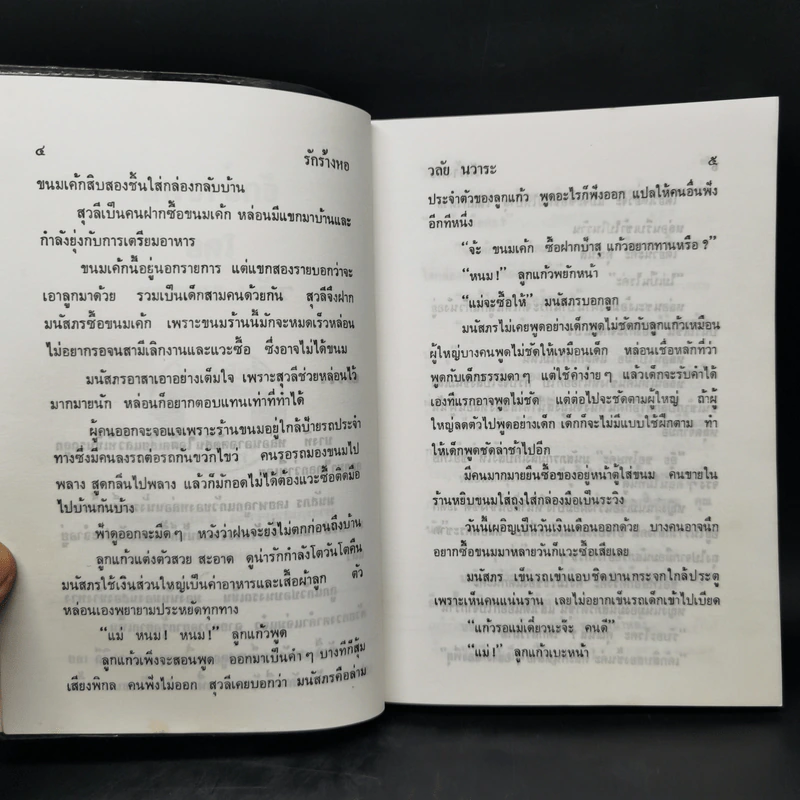 ๔
รักร้างหอ
ขนมเค้กสิบสองชิ้นใส่กล่องกลับบ้าน
สุวลีเป็นคนฝากซื้อขนมเค้ก หล่อนมีแขกมาบ้านและ
กำลังยุ่งกับการเตรียมอาหาร
ขนมเค้กนี้อยู่นอกรายการ แต่แขกสองรายบอกว่าจะ
เอาลูกมาด้วย รวมเป็นเด็กสามคนด้วยกัน สุวลีจึงฝาก
มนัสภรซื้อขนมเค้ก เพราะขนมร้านนี้มักจะหมดเร็วหล่อน
ไม่อยากรอจนสามีเลิกงานและแวะซื้อ ซึ่งอาจไม่ได้ขนม
มนัสภรอาสาเอาอย่างเต็มใจ เพราะสุวลีช่วยหล่อนไว้
มากมายนัก หล่อนก็อยากตอบแทนเท่าที่ทำได้
ผู้คนออกจะจอแจเพราะร้านขนมอยู่ใกล้ป้ายรถประจำ
ทางซึ่งมีคนลงรถต่อรถกันขวักไขว่ คนรอรถมองขนมไป
พลาง สูดกลิ่นไปพลาง แล้วก็มักอดไม่ได้ต้องแวะซื้อติดมือ
ไปบ้านกันบ้าง
ฟ้าดูออกจะมืดๆ หวังว่าฝนจะยังไม่ตกก่อนถึงบ้าน
ลูกแก้วแต่งตัวสวย สะอาด ดูน่ารักกำลังโตวันโตคืน
มนัสภรใช้เงินส่วนใหญ่เป็นค่าอาหารและเสื้อผ้าลูก ตัว
หล่อนเองพยายามประหยัดทุกทาง
“แม่ หนม! หนม!” ลูกแก้วพูด
ลูกแก้วเพิ่งจะสอนพูด ออกมาเป็นคำๆ บางทีก็สุ้ม
เสียงพิกล คนฟังไม่ออก สุวลีเคยบอกว่า มนัสภรคือล่าม
วลัย นวาระ
๕
ประจำตัวของลูกแก้ว พูดอะไรก็ฟังออก แปลให้คนอื่นฟัง
อีกทีหนึ่ง
“จ้ะ ขนมเค้ก ซื้อฝากป้าสุ แก้วอยากทานหรือ?”
“หนม!” ลูกแก้วพยักหน้า
“แม่จะซื้อให้” มนัสภรบอกลูก
มนัสภรไม่เคยพูดอย่างเด็กพูดไม่ชัดกับลูกแก้วเหมือน
ผู้ใหญ่บางคนพูดไม่ชัดให้เหมือนเด็ก หล่อนเชื่อหลักที่ว่า
พูดกับเด็กธรรมดาๆ แต่ใช้คำง่ายๆ แล้วเด็กจะรับคำได้
เองทีแรกอาจพูดไม่ชัด แต่ต่อไปจะชัดตามผู้ใหญ่ ถ้าผู้
ใหญ่ลดตัวไปพูดอย่างเด็ก เด็กก็จะไม่มีแบบใช้ฝึกตาม ทำ
ให้เด็กพูดชัดล่าช้าไปอีก
มีคนมากมายยืนซื้อของอยู่หน้าตู้ใส่ขนม คนขายใน
ร้านหยิบขนมใส่ถุงใส่กล่องมือเป็นระวิง
วันนี้เผอิญเป็นวันเงินเดือนออกด้วย บางคนอาจนึก
อยากซื้อขนมมาหลายวันก็แวะซื้อเสียเลย
มนัสภร เข็นรถเข้าแอบชิดบานกระจกใกล้ประตู
เพราะเห็นคนแน่นร้าน เลยไม่อยากเข็นรถเด็กเข้าไปเบียด
“แก้วรอแม่เดี๋ยวนะจ๊ะ คนดี”
“แม่!” ลูกแก้วเบะหน้า